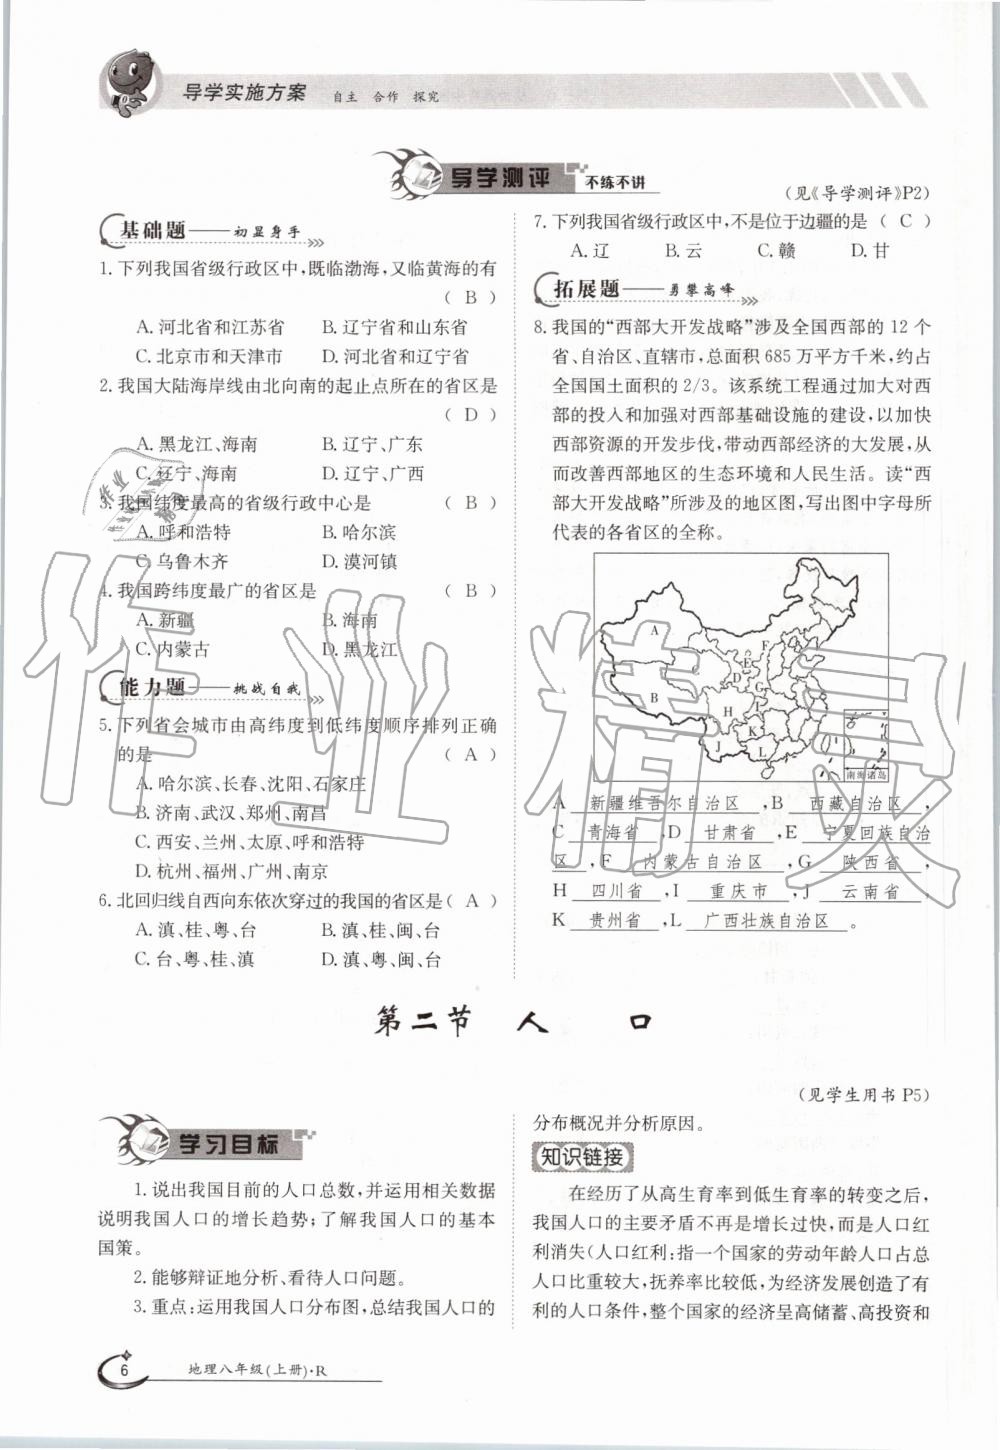 导学实施方案 自主 合作 探究
导学测评 不练不讲
基础题——初显身手
1.下列我国省级行政区中,既临渤海,又临黄海的有
( B )
A.河北省和江苏省 B.辽宁省和山东省
C.北京市和天津市 D.河北省和辽宁省
2.我国大陆海岸线由北向南的起止点所在的省区是
( D )
A.黑龙江、海南 B.辽宁、广东
C.辽宁、海南 D.辽宁、广西
3.我国纬度最高的省级行政中心是 ( B )
A.呼和浩特 B.哈尔滨
C.乌鲁木齐 D.漠河镇
4.我国跨纬度最广的省区是 ( B )
A.新疆 B.海南
C.内蒙古 D.黑龙江
能力题——挑战自我
5.下列省会城市由高纬度到低纬度顺序排列正确
的是 ( A )
A.哈尔滨、长春、沈阳、石家庄
B.济南、武汉、郑州、南昌
C.西安、兰州、太原、呼和浩特
D.杭州、福州、广州、南京
6.北回归线自西向东依次穿过的我国的省区是( A )
A.滇、桂、粤、台 B.滇、桂、闽、台
C.台、粤、桂、滇 D.滇、粤、闽、台
(见《导学测评》P2)
7.下列我国省级行政区中,不是位于边疆的是 ( C )
A.辽 B.云 C.赣 D.甘
拓展题——勇攀高峰
8.我国的“西部大开发战略”涉及全国西部的 12 个
省、自治区、直辖市,总面积 685 万平方千米,约占
全国国土面积的 2/3。该系统工程通过加大对西
部的投入和加强对西部基础设施的建设,以加快
西部资源的开发步伐,带动西部经济的大发展,从
而改善西部地区的生态环境和人民生活。读“西
部大开发战略”所涉及的地区图,写出图中字母所
代表的各省区的全称。
A
B
D
E
F
G
H
I
J
K
L
南海诸岛
A 新疆维吾尔自治区 ,B 西藏自治区 ,
C 青海省 ,D 甘肃省 ,E 宁夏回族自治
区 ,F 内蒙古自治区 ,G 陕西省 ,
H 四川省 ,I 重庆市 ,J 云南省 ,
K 贵州省 ,L 广西壮族自治区 。
第二节 人 口
学习目标
1.说出我国目前的人口总数,并运用相关数据
说明我国人口的增长趋势;了解我国人口的基本
国策。
2.能够辩证地分析、看待人口问题。
3.重点:运用我国人口分布图,总结我国人口的
(见学生用书 P5)
分布概况并分析原因。
知识链接
在经历了从高生育率到低生育率的转变之后,
我国人口的主要矛盾不再是增长过快,而是人口红
利消失(人口红利:指一个国家的劳动年龄人口占总
人口比重较大,抚养率比较低,为经济发展创造了有
利的人口条件,整个国家的经济呈高储蓄、高投资和
6 地理八年级(上册)·R
作业精灵